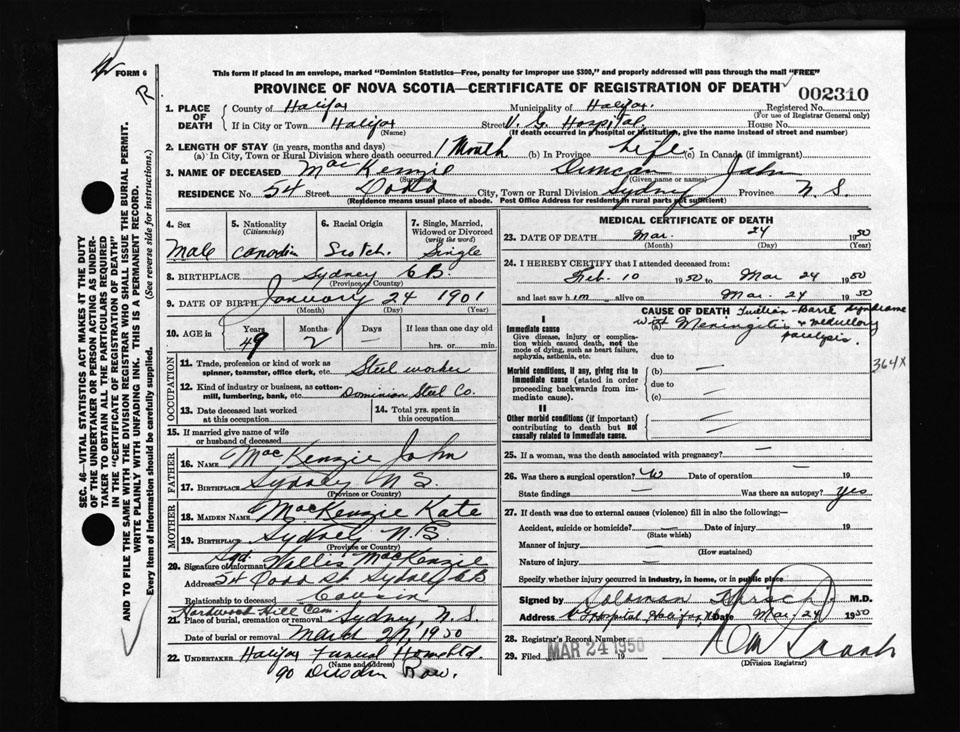 FORM 6
R
This form if placed in an envelope, marked "Dominion Statistics—Free, penalty for improper use $300," and properly addressed will pass through the mail "FREE"
PROVINCE OF NOVA SCOTIA—CERTIFICATE OF REGISTRATION OF DEATH
002310
1. PLACE OF DEATH
County of Halifax Municipality of Halifax. Registered No.
(For use of Registrar General only)
If in City or Town Halifax Street V. G. Hospital. House No.
(Name) (If death occurred in a hospital or institution, give the name instead of street and number)
2. LENGTH OF STAY (in years, months and days)
(a) In City, Town or Rural Division where death occurred 1 Month (b) In Province Life. (c) In Canada (if immigrant)
3. NAME OF DECEASED MacKenzie Duncan John
(Surname) (Given name or names)
RESIDENCE No. 54 Street Dodd City, Town or Rural Division Sydney Province N. S.
(Residence means usual place of abode. Post Office Address for residents in rural parts not sufficient)
4. Sex
Male
5. Nationality
(Citizenship)
Canadian
6. Racial Origin
Scotch.
7. Single, Married, Widowed or Divorced
(write the word)
Single
8. BIRTHPLACE Sydney CB.
(Province or Country)
9. DATE OF BIRTH January 24 1901
(Month) (Day) (Year)
10. AGE in Years Months Days If less than one day old
49 2 — hrs. or min.
OCCUPATION
11. Trade, profession or kind of work as spinner, teamster, office clerk, etc. Steel worker
12. Kind of industry or business, as cotton-mill, lumbering, bank, etc. Dominion Steel Co.
13. Date deceased last worked at this occupation
14. Total yrs. spent in this occupation
15. If married give name of wife or husband of deceased
FATHER
16. NAME MacKenzie John
17. BIRTHPLACE Sydney N S.
(Province or Country)
MOTHER
18. MAIDEN NAME MacKenzie Kate
19. BIRTHPLACE Sydney N.S.
(Province or Country)
20. Signature of informant Sgd: Wallis MacKenzie
Address 54 Dodd St Sydney CB
Relationship to deceased Cousin
Hardwood Hill Cem.
21. Place of burial, cremation or removal Sydney, N. S.
Date of burial or removal March 27, 1950
22. UNDERTAKER Halifax Funeral Home Ltd.
(Name and address)
90 Dresden Row.
MEDICAL CERTIFICATE OF DEATH
23. DATE OF DEATH Mar. 24 1950
(Month) (Day) (Year)
24. I HEREBY CERTIFY that I attended deceased from:
Feb. 10 1950 to Mar 24 1950
and last saw him alive on Mar. 24 1950
CAUSE OF DEATH
I
Immediate cause
Give disease, injury or complication which caused death, not the mode of dying, such as heart failure, asphyxia, asthenia, etc.
(a) Guillain-Barré Syndrome with Meningitis & medullary paralysis.
due to
Morbid conditions, if any, giving rise to immediate cause (stated in order proceeding backwards from immediate cause).
(b) —
due to
(c)
364X
II
Other morbid conditions (if important) contributing to death but not causally related to immediate cause.
25. If a woman, was the death associated with pregnancy? —
26. Was there a surgical operation? Date of operation — 19
State findings — Was there an autopsy? Yes
27. If death was due to external causes (violence) fill in also the following:—
Accident, suicide or homicide? — Date of injury — 19
(State which)
Manner of injury —
(How sustained)
Nature of injury —
Specify whether injury occurred in industry, in home, or in public place
Signed by Solomon Hirsch M.D.
Address V G Hospital, Halifax, NS Date Mar. 24 1950
28. Registrar's Record Number
29. Filed MAR 24 1950 19
(Division Registrar)
SEC. 46—VITAL STATISTICS ACT MAKES IT THE DUTY
OF THE UNDERTAKER OR PERSON ACTING AS UNDER-
TAKER TO OBTAIN ALL THE PARTICULARS REQUIRED
IN THE "CERTIFICATE OF REGISTRATION OF DEATH"
AND TO FILE THE SAME WITH THE DIVISION REGISTRAR WHO SHALL ISSUE THE BURIAL PERMIT.
WRITE PLAINLY WITH UNFADING INK. THIS IS A PERMANENT RECORD.
Every item of Information should be carefully supplied. (See reverse side for instructions.)